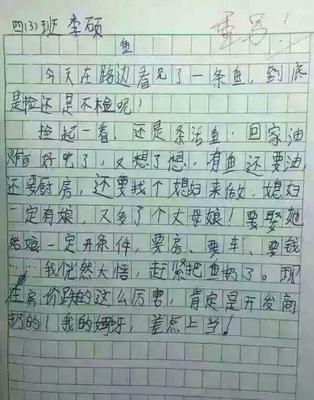 四(3)班 李硕
重写!
鱼
今天在路边看见了一条鱼,到底
是捡还是不捡呢!
捡起一看,还是条活鱼,回家油
炸好吧了,又想了想,有鱼还要油,
还要厨房,还要找个媳妇来做,媳妇
一定有娘,又多了个丈母娘!要娶她
姑娘一定开条件,要房、要车、要钱
……我恍然大悟,赶紧把鱼扔了。现
在房价跌的这么厉害,肯定是开发商
扔的!我的妈呀,差点上当!